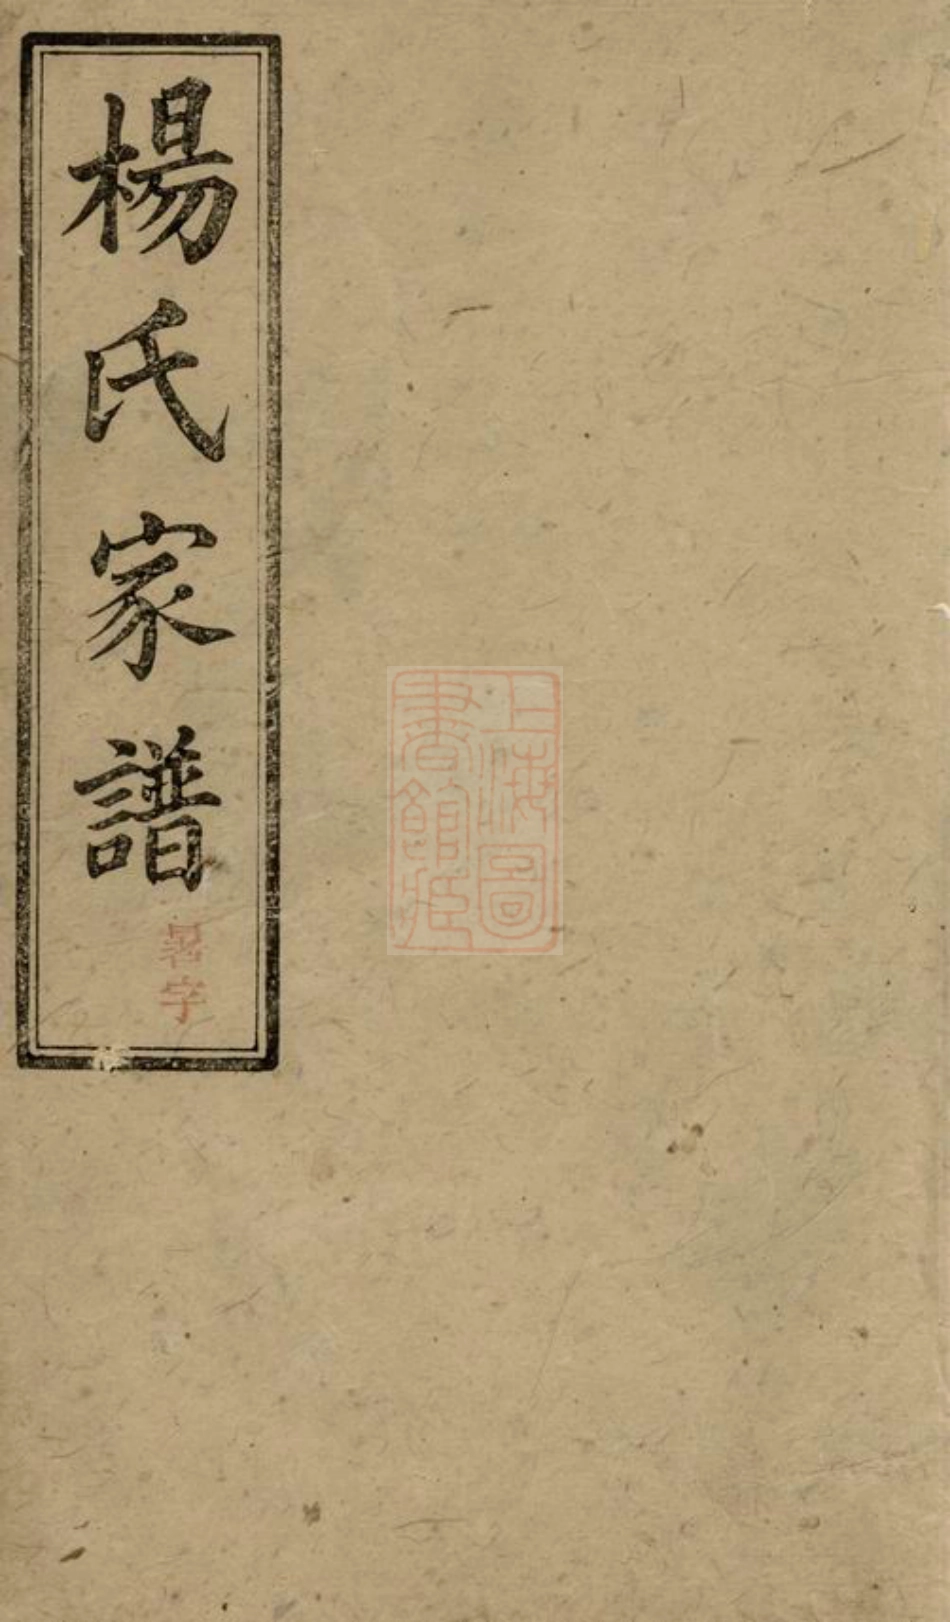 楊氏家譜
暑字
上海圖
書館藏